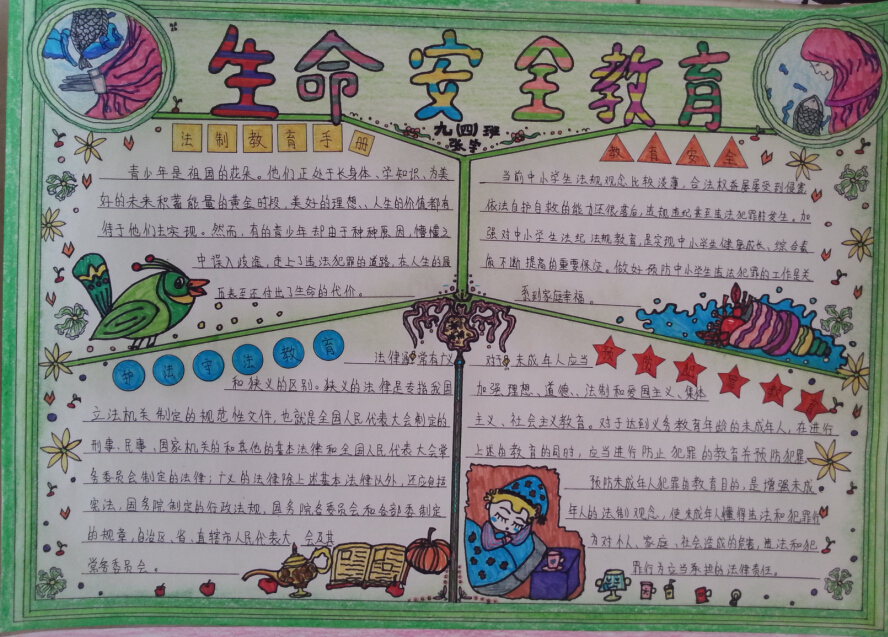 生命安全教育
九(四)班
法制教育手册
青少年是祖国的花朵。他们正处于长身体、学知识、为美
好的未来积蓄能量的黄金时段,美好的理想、、人生的价值都有
待于他们去实现。然而,有的青少年却由于种种原因,懵懂之
中误入歧途,走上了违法犯罪的道路,在人生的展
页甚至还付出了生命的代价。
教育安全
当前中小学生法规观念比较淡薄,合法权益屡屡受到侵害
依法自护自救的能力还很落后,违规违纪甚至违法犯罪时发生。加
强对中小学生法纪法规教育,是实现中小学生健康成长、综合素
质不断提高的重要保证。做好预防中小学生违法犯罪的工作是关
系到家庭幸福。
护法守法教育
法律通常有广义
和狭义的区别。狭义的法律是专指我国
立法机关制定的规范性文件,也就是全国人民代表大会制定的
刑事、民事、国家机关的和其他的基本法律和全国人民代表大会常
务委员会制定的法律;广义的法律除上述基本法律以外,还应包括
宪法,国务院制定的行政法规,国务院各委员会和各部委制定
的规章,自治区、省、直辖市人民代表大会及其
常务委员会。
预防犯罪教育
对于未成年人应当
加强理想、道德、、法制和爱国主义、集体
主义、社会主义教育。对于达到义务教育年龄的未成年人,在进行
上述自教育的同时,应当进行防止犯罪的教育并预防犯罪。
预防未成年人犯罪自教育目的,是增强未成
年人的法制观念,使未成年人懂得违法和犯罪行
为对个人、家庭、社会造成的危害,违法和犯
罪行为应当承担的法律责任。